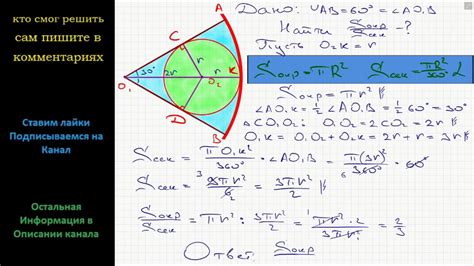 кто смог решить
сам пишите в
комментариях
Ставим лайки
Подписываемся на
Канал
Остальная
Информация в
Описании канала
A
C
r
30°
2r
r
O₁
O₂
K
D
B
Дано: ∪AB=60°=∠AO₁B
Найти Sокр/Sсек -?
Пусть O₂K=r
Sокр=πR² Sсек=πR²/360° α
Sокр=πr²
∠AO₁K=½∠AO₁B=½·60°=30°
O₁O₂=2r
O₁K=O₁O₂+O₂K=2r+r=3r
Sсек=πO₁K²/360°·∠AO₁B=π(3r)²/360°·60°
Sсек=3πr²/2
Sокр/Sсек=πr²:3πr²/2=πr²·2/3πr²=2/3
Ответ: Sокр